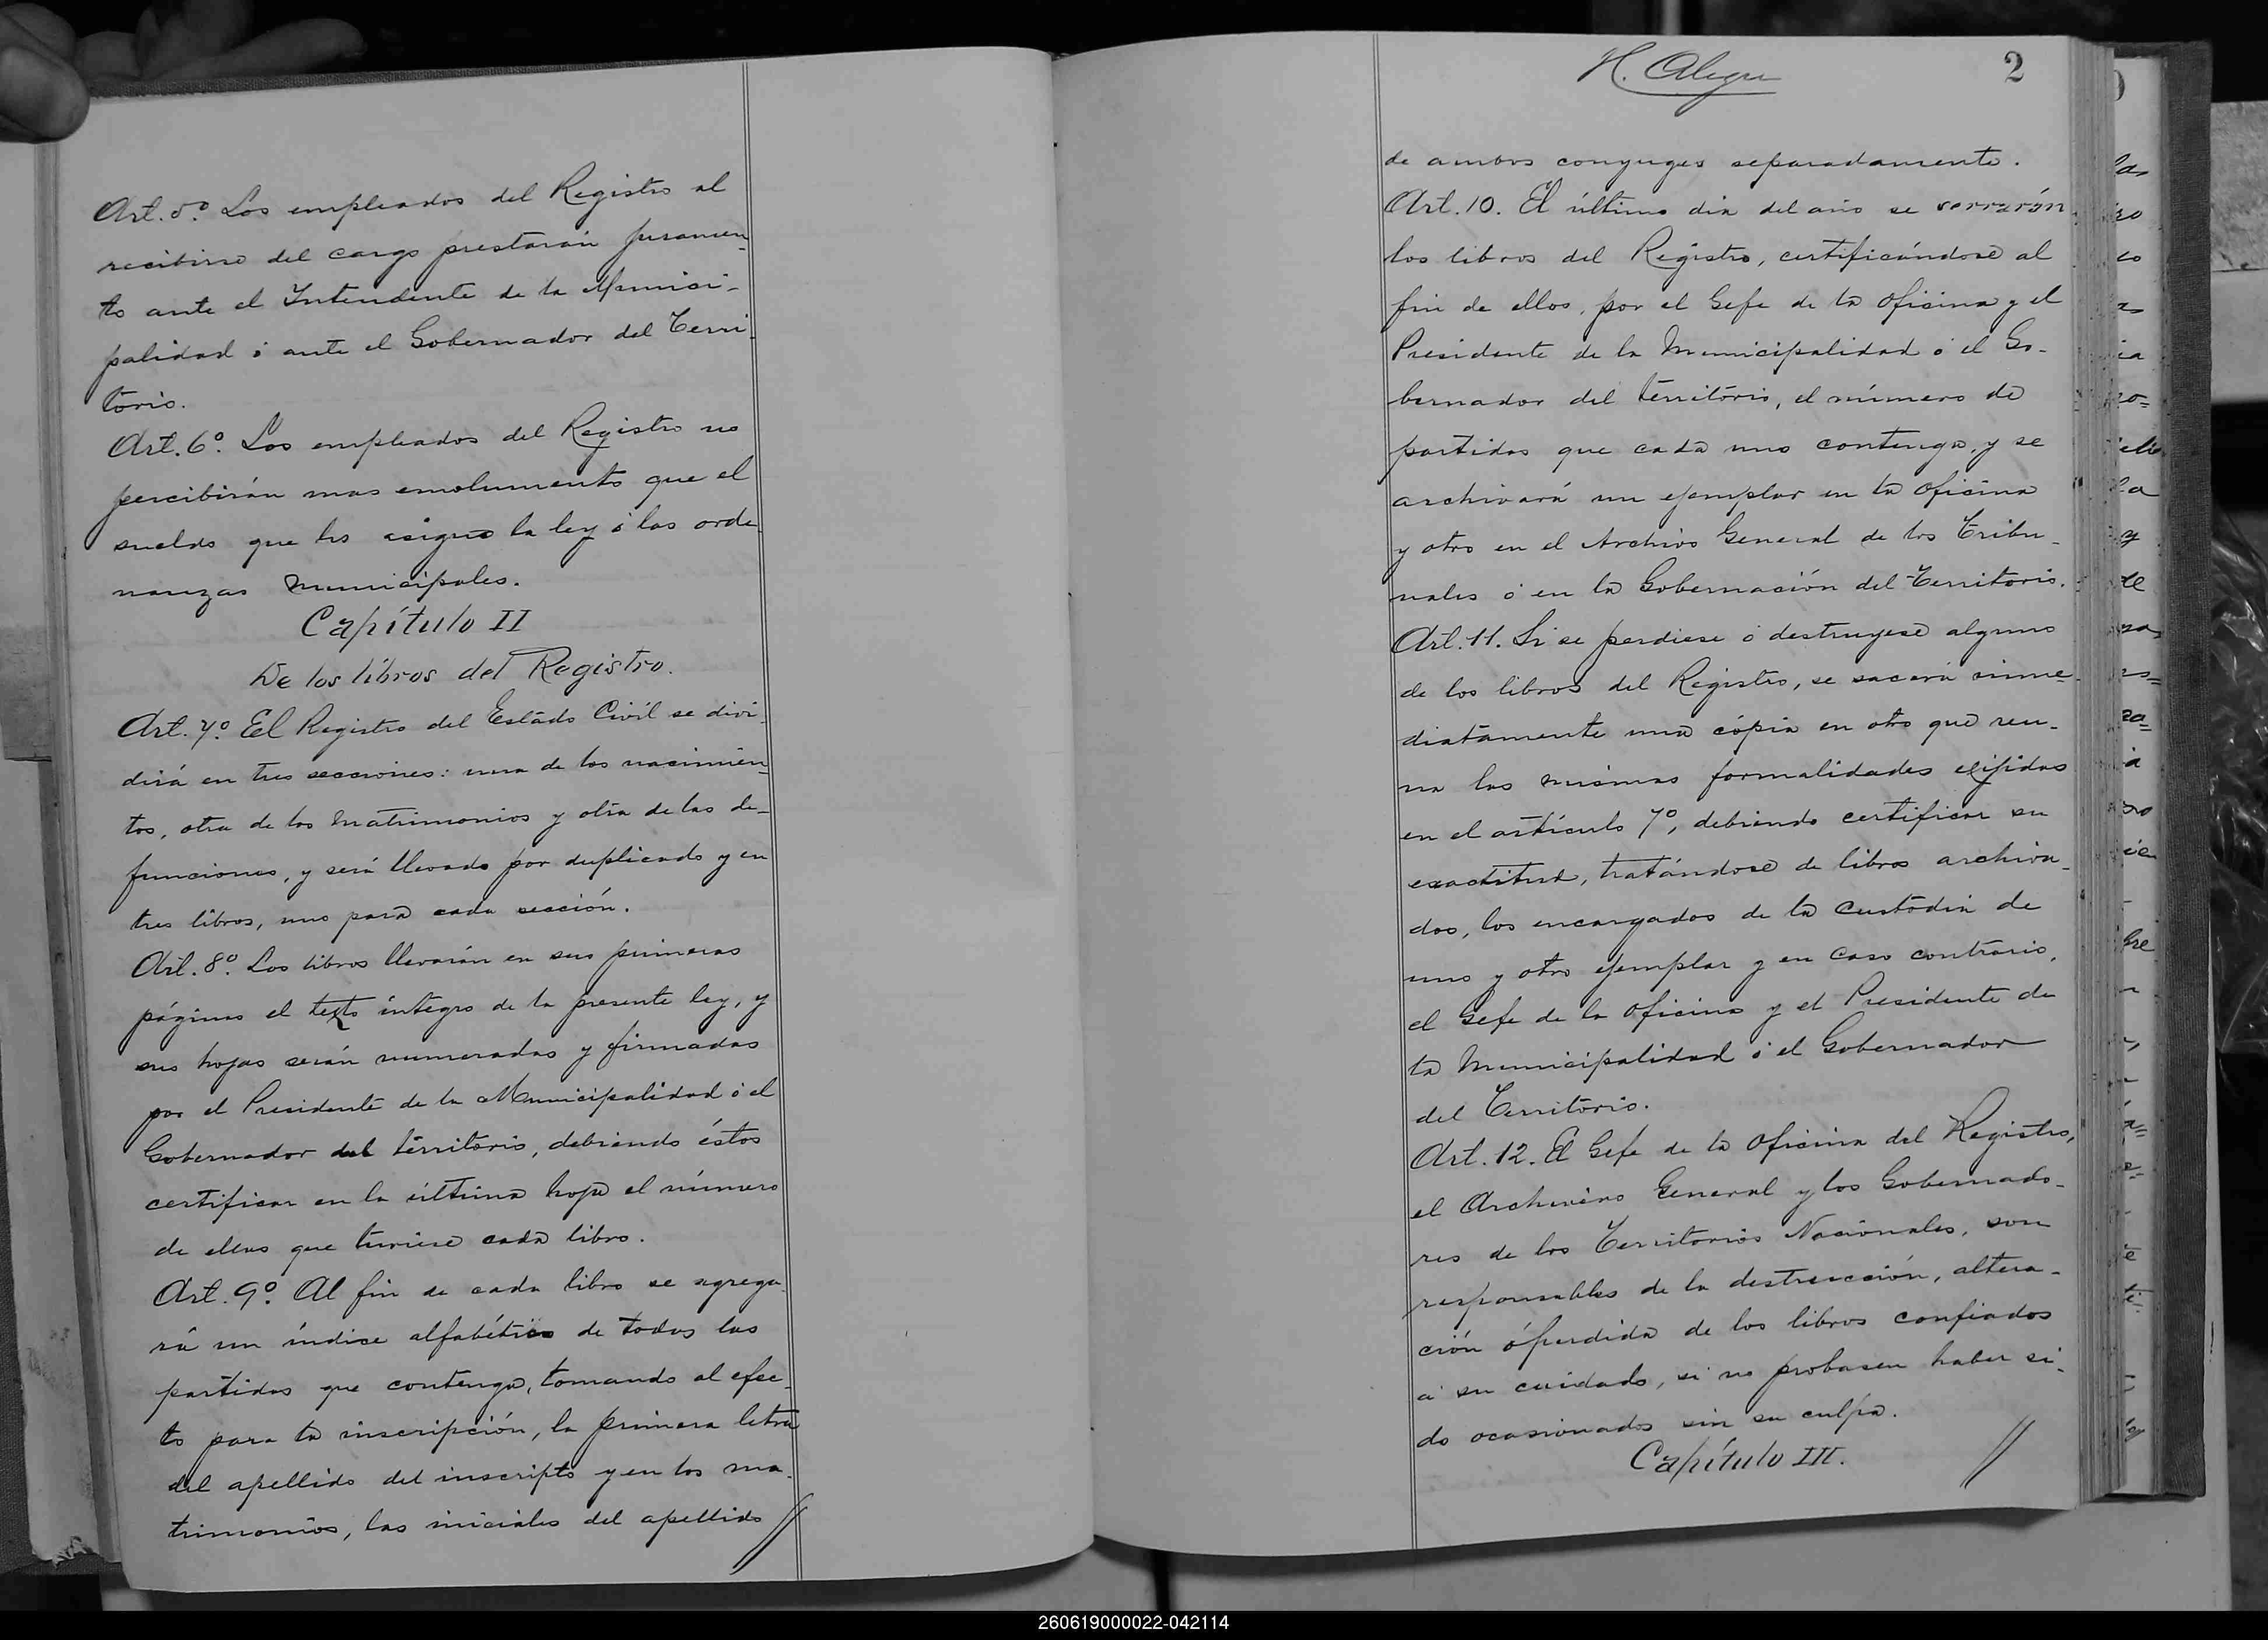 Art. 5º. Los empleados del Registro al
recibirse del cargo prestarán juramen-
to ante el Intendente de la Munici-
palidad ó ante el Gobernador del Terri-
torio.
Art. 6º. Los empleados del Registro no
percibirán mas emolumento que el
sueldo que les asigne la ley ó las orde-
nanzas Municipales.
Capítulo II
De los libros del Registro.
Art. 7º. El Registro del Estado Civil se divi-
dirá en tres secciones: una de los nacimien-
tos, otra de los Matrimonios y otra de las de-
funciones, y será llevado por duplicado y en
tres libros, uno para cada sección.
Art. 8º. Los libros llevarán en sus primeras
páginas el texto íntegro de la presente ley, y
sus hojas serán numeradas y firmadas
por el Presidente de la Municipalidad ó el
Gobernador del territorio, debiendo éstos
certificar en la última hoja el número
de ellas que tuviese cada libro.
Art. 9º. Al fin de cada libro se agrega-
rá un índice alfabético de todas las
partidas que contenga, tomando al efec-
to para la inscripción, la primera letra
del apellido del inscripto y en los ma-
trimonios, las iniciales del apellido
H. Alegre
2
de ambos conyuges separadamente.
Art. 10. El último dia del año se serrarán
los libros del Registro, certificándose al
fin de ellos, por el Gefe de la Oficina y el
Presidente de la Municipalidad ó el Go-
bernador del territorio, el número de
partidas que cada uno contenga, y se
archivará un ejemplar en la oficina
y otro en el Archivo General de los Tribu-
nales ó en la Gobernación del Territorio.
Art. 11. Si se perdiese ó destruyese alguno
de los libros del Registro, se sacará inme-
diatamente una cópia en otro que reu-
na las mismas formalidades exijidas
en el artículo 7º, debiendo certificar su
exactitud, tratándose de libros archiva-
dos, los encargados de la custodia de
uno y otro ejemplar y en caso contrario,
el Gefe de la Oficina y el Presidente de
la Municipalidad ó el Gobernador
del Territorio.
Art. 12. El Gefe de la Oficina del Registro,
el Archivero General y los Gobernado-
res de los Territorios Nacionales, son
responsables de la destrucción, altera-
ción ó perdida de los libros confiados
á su cuidado, si no probasen haber si-
do ocasionados sin su culpa.
Capítulo III.
260619000022-042114